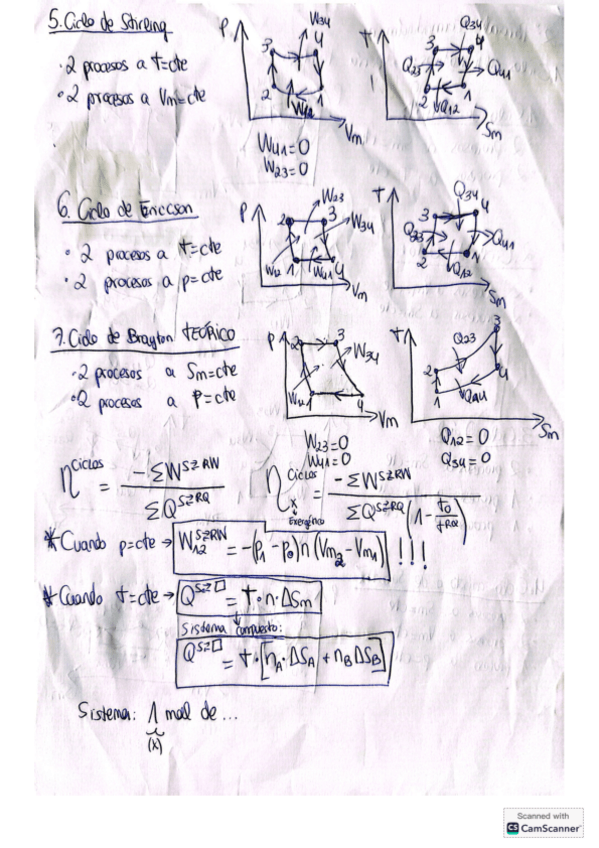 5. Ciclo de Stirling
· 2 procesos a T=cte
· 2 procesos a Vm=cte
P
W34
3
4
2
1
W12
Vm
W41=0
W23=0
T
Q34
3
4
Q23
Q41
2
1
Q12
Sm
6. Ciclo de Ericcson
· 2 procesos a T=cte
· 2 procesos a p=cte
P
W23
2
3
W34
W12
1
W41
4
Vm
T
Q34
3
4
Q23
Q41
2
1
Q12
Sm
7. Ciclo de Brayton TEÓRICO
· 2 procesos a Sm=cte
· 2 procesos a P=cte
P
2
3
W34
W12
1
4
Vm
W23=0
W41=0
T
3
Q23
2
4
1
Q41
Sm
Q12=0
Q34=0
η^Ciclos = -ΣW^S⇄RW / ΣQ^S⇄RQ
η_x^Ciclos = -ΣW^S⇄RW / ΣQ^S⇄RQ (1 - T0/TRQ)
Exergético
* Cuando p=cte → W12^S⇄RW = -(P1 - P0) n (Vm2 - Vm1) !!!
* Cuando T=cte → Q^S⇄□ = T·n·ΔSm
Sistema compuesto:
Q^S⇄□ = T·[nA·ΔSA + nBΔSB]
Sistema: 1 mol de ...
(x)
Scanned with
CS CamScanner